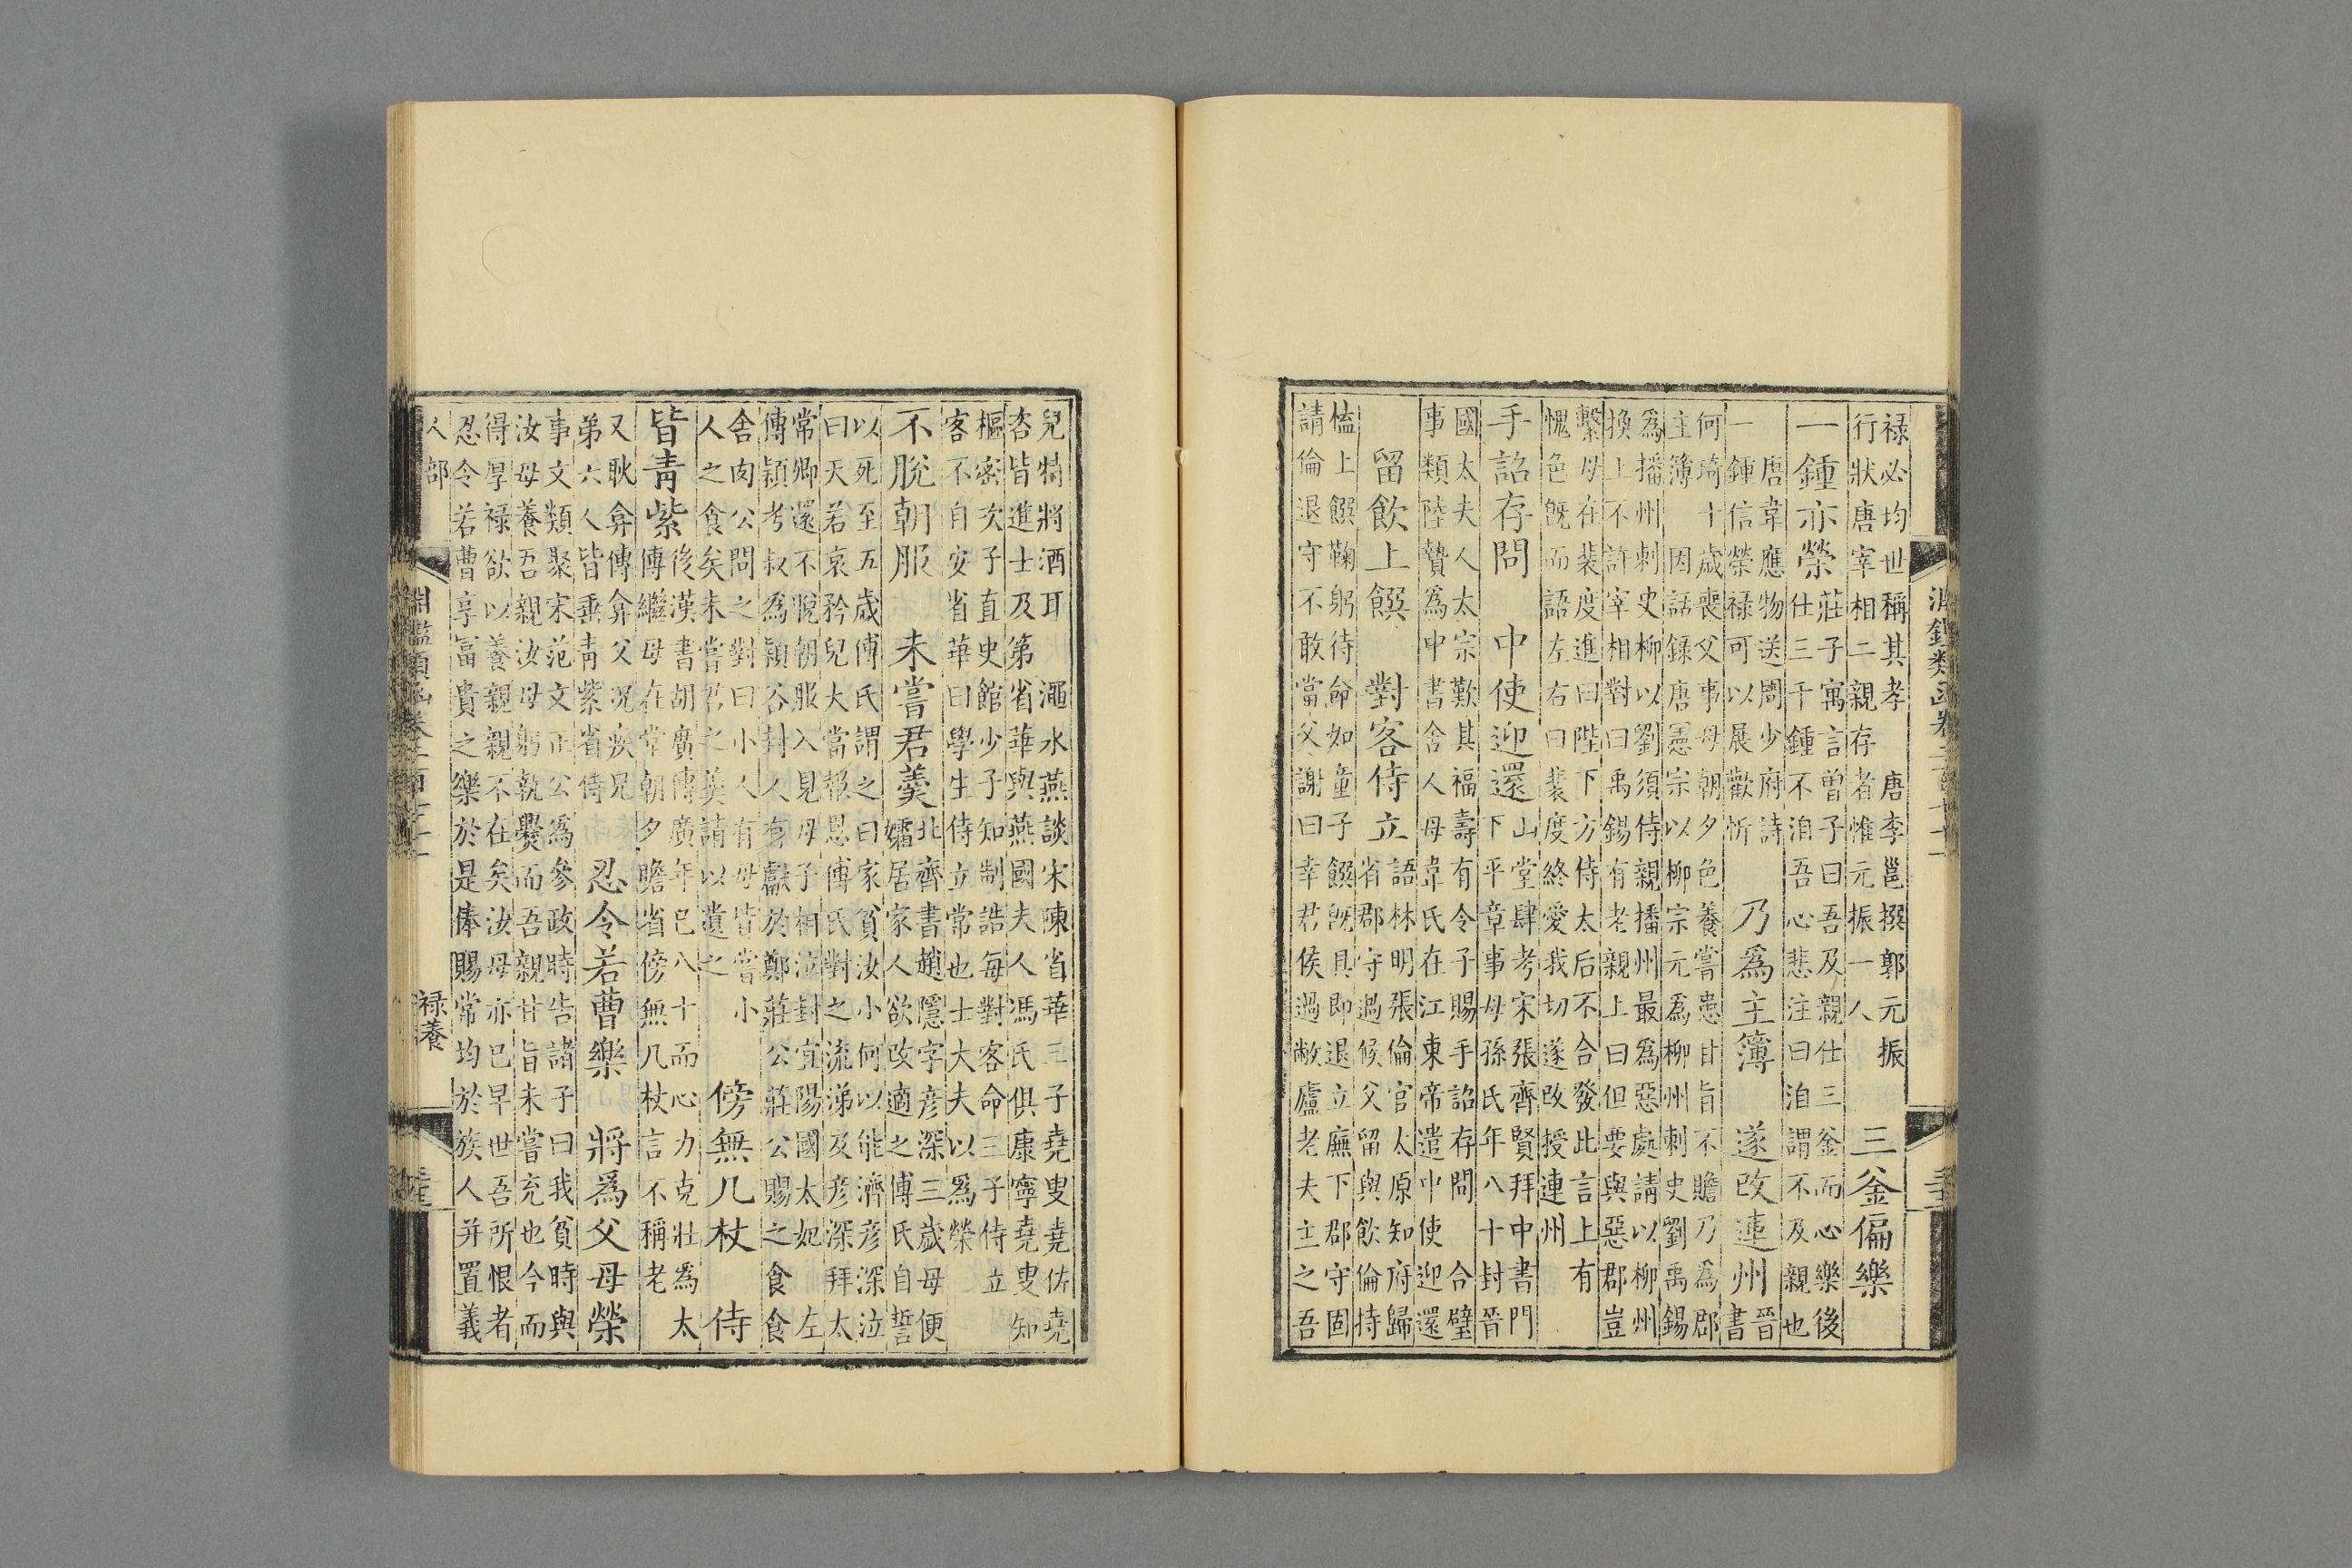 淵鑑類函卷二百七十一
祿必均世稱其孝　唐李邕撰郭元振
行狀唐宰相二親存者惟元振一人
三釜偏樂
一鍾亦榮
莊子寓言曾子曰吾及親仕三釜而心樂後
仕三千鍾不洎吾心悲注曰洎謂不及親也
唐韋應物送閻少府詩
一鍾信榮祿可以展歡忻
乃爲主簿　遂改連州
晉
書
何琦十歲喪父事母朝夕色養嘗患甘旨不贍乃爲郡
主簿　因話錄唐憲宗以柳宗元爲柳州刺史劉禹錫
爲播州刺史柳以劉須侍親播州最爲惡處請以柳州
換上不許宰相對曰禹錫有老親上曰但要與惡郡豈
繫母在裴度進曰陛下方侍太后不合發此言上有
愧色旣而語左右曰裴度終愛我切遂改授連州
手詔存問　中使迎還
山堂肆考宋張齊賢拜中書門
下平章事母孫氏年八十封晉
國太夫人太宗歎其福壽有令子賜手詔存問　合璧
事類陸贄爲中書舍人母韋氏在江東帝遣中使迎還
留飲上饌　對客侍立
語林明張倫官太原知府歸
省郡守過候父留與飲倫持
榼上饌鞠躬待命如童子饌旣具即退立廡下郡守固
請倫退守不敢當父謝曰幸君侯過敝廬老夫主之吾
兒特將酒耳　澠水燕談宋陳省華三子堯叟堯佐堯
咨皆進士及第省華與燕國夫人馮氏俱康寧堯叟知
樞密次子直史館少子知制誥每對客命三子侍立
客不自安省華曰學生侍立常也士大夫以爲榮
不脫朝服　未嘗君羹
北齊書趙隱字彥深三歲母便
孀居家人欲改適之傅氏自誓
以死至五歲傅氏謂之曰家貧汝小何以能濟彥深泣
曰天若哀矜兒大當報恩傅氏對之流涕及彥深拜太
常卿還不脫朝服入見母子相泣封宜陽國太妃　左
傳穎考叔爲穎谷封人有獻於鄭莊公莊公賜之食食
舍肉公問之對曰小人有母皆嘗小
人之食矣未嘗君之羹請以遺之
傍無几杖　侍
皆青紫
後漢書胡廣傳廣年已八十而心力克壯爲太
傅繼母在常朝夕瞻省傍無几杖言不稱老
又耿弇傳弇父況疾兄
弟六人皆垂青紫省侍
忍令若曹樂　將爲父母榮
事文類聚宋范文正公爲參政時告諸子曰我貧時與
汝母養吾親汝母躬執爨而吾親甘旨未嘗充也今而
得厚祿欲以養親親不在矣汝母亦已早世吾所恨者
忍令若曹享富貴之樂於是俸賜常均於族人并置義
人部
祿養